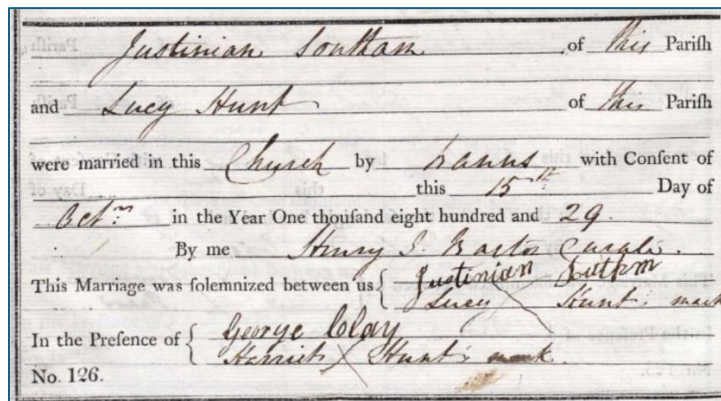 Justinian Southam of this Parish
and Lucy Hunt of this Parish
were married in this Church by banns with Consent of
this 15th Day of
Octr in the Year One thousand eight hundred and 29.
By me Henry S. Curate.
This Marriage was solemnized between us { Justinian Suthm
Lucy X Hunt's mark
In the Presence of { George Clay
Harriet X Hunt's mark.
No. 126.